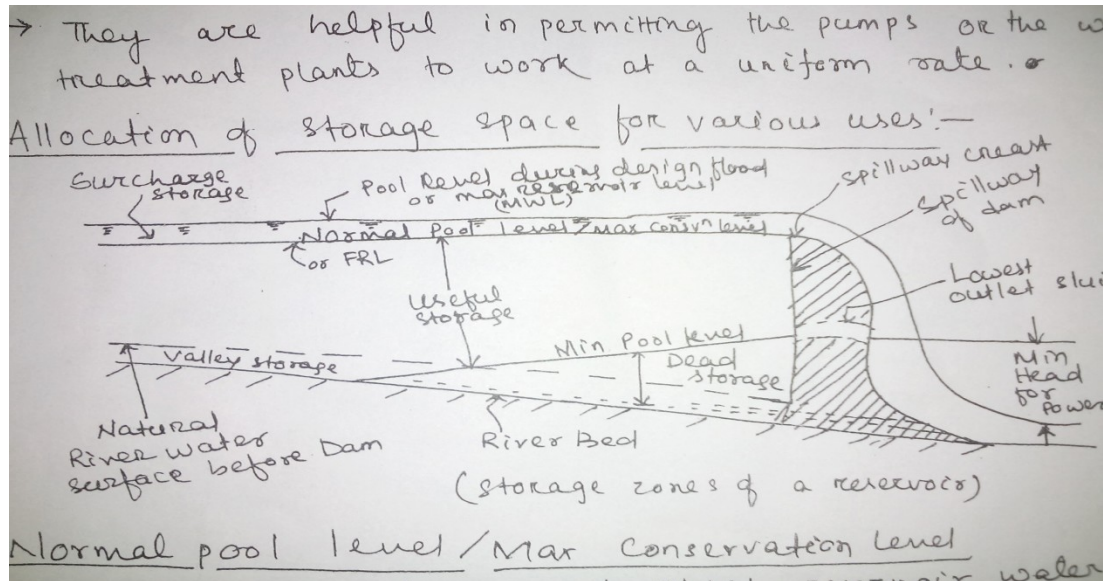 → They are helpful in permitting the pumps or the w
treatment plants to work at a uniform rate.
Allocation of storage space for various uses:—
Surcharge
storage
Pool Level during design flood
or max reservoir level
(MWL)
Spillway creast
Spillway
of dam
Normal Pool level/Max Consvn level
or FRL
Useful
storage
Lowest
outlet slui
Valley storage
Min Pool level
Dead
storage
Min
Head
for
Power
Natural
River water
surface before Dam
River Bed
(storage zones of a reservoir)
Normal pool level/Max Conservation Level
reservoir water